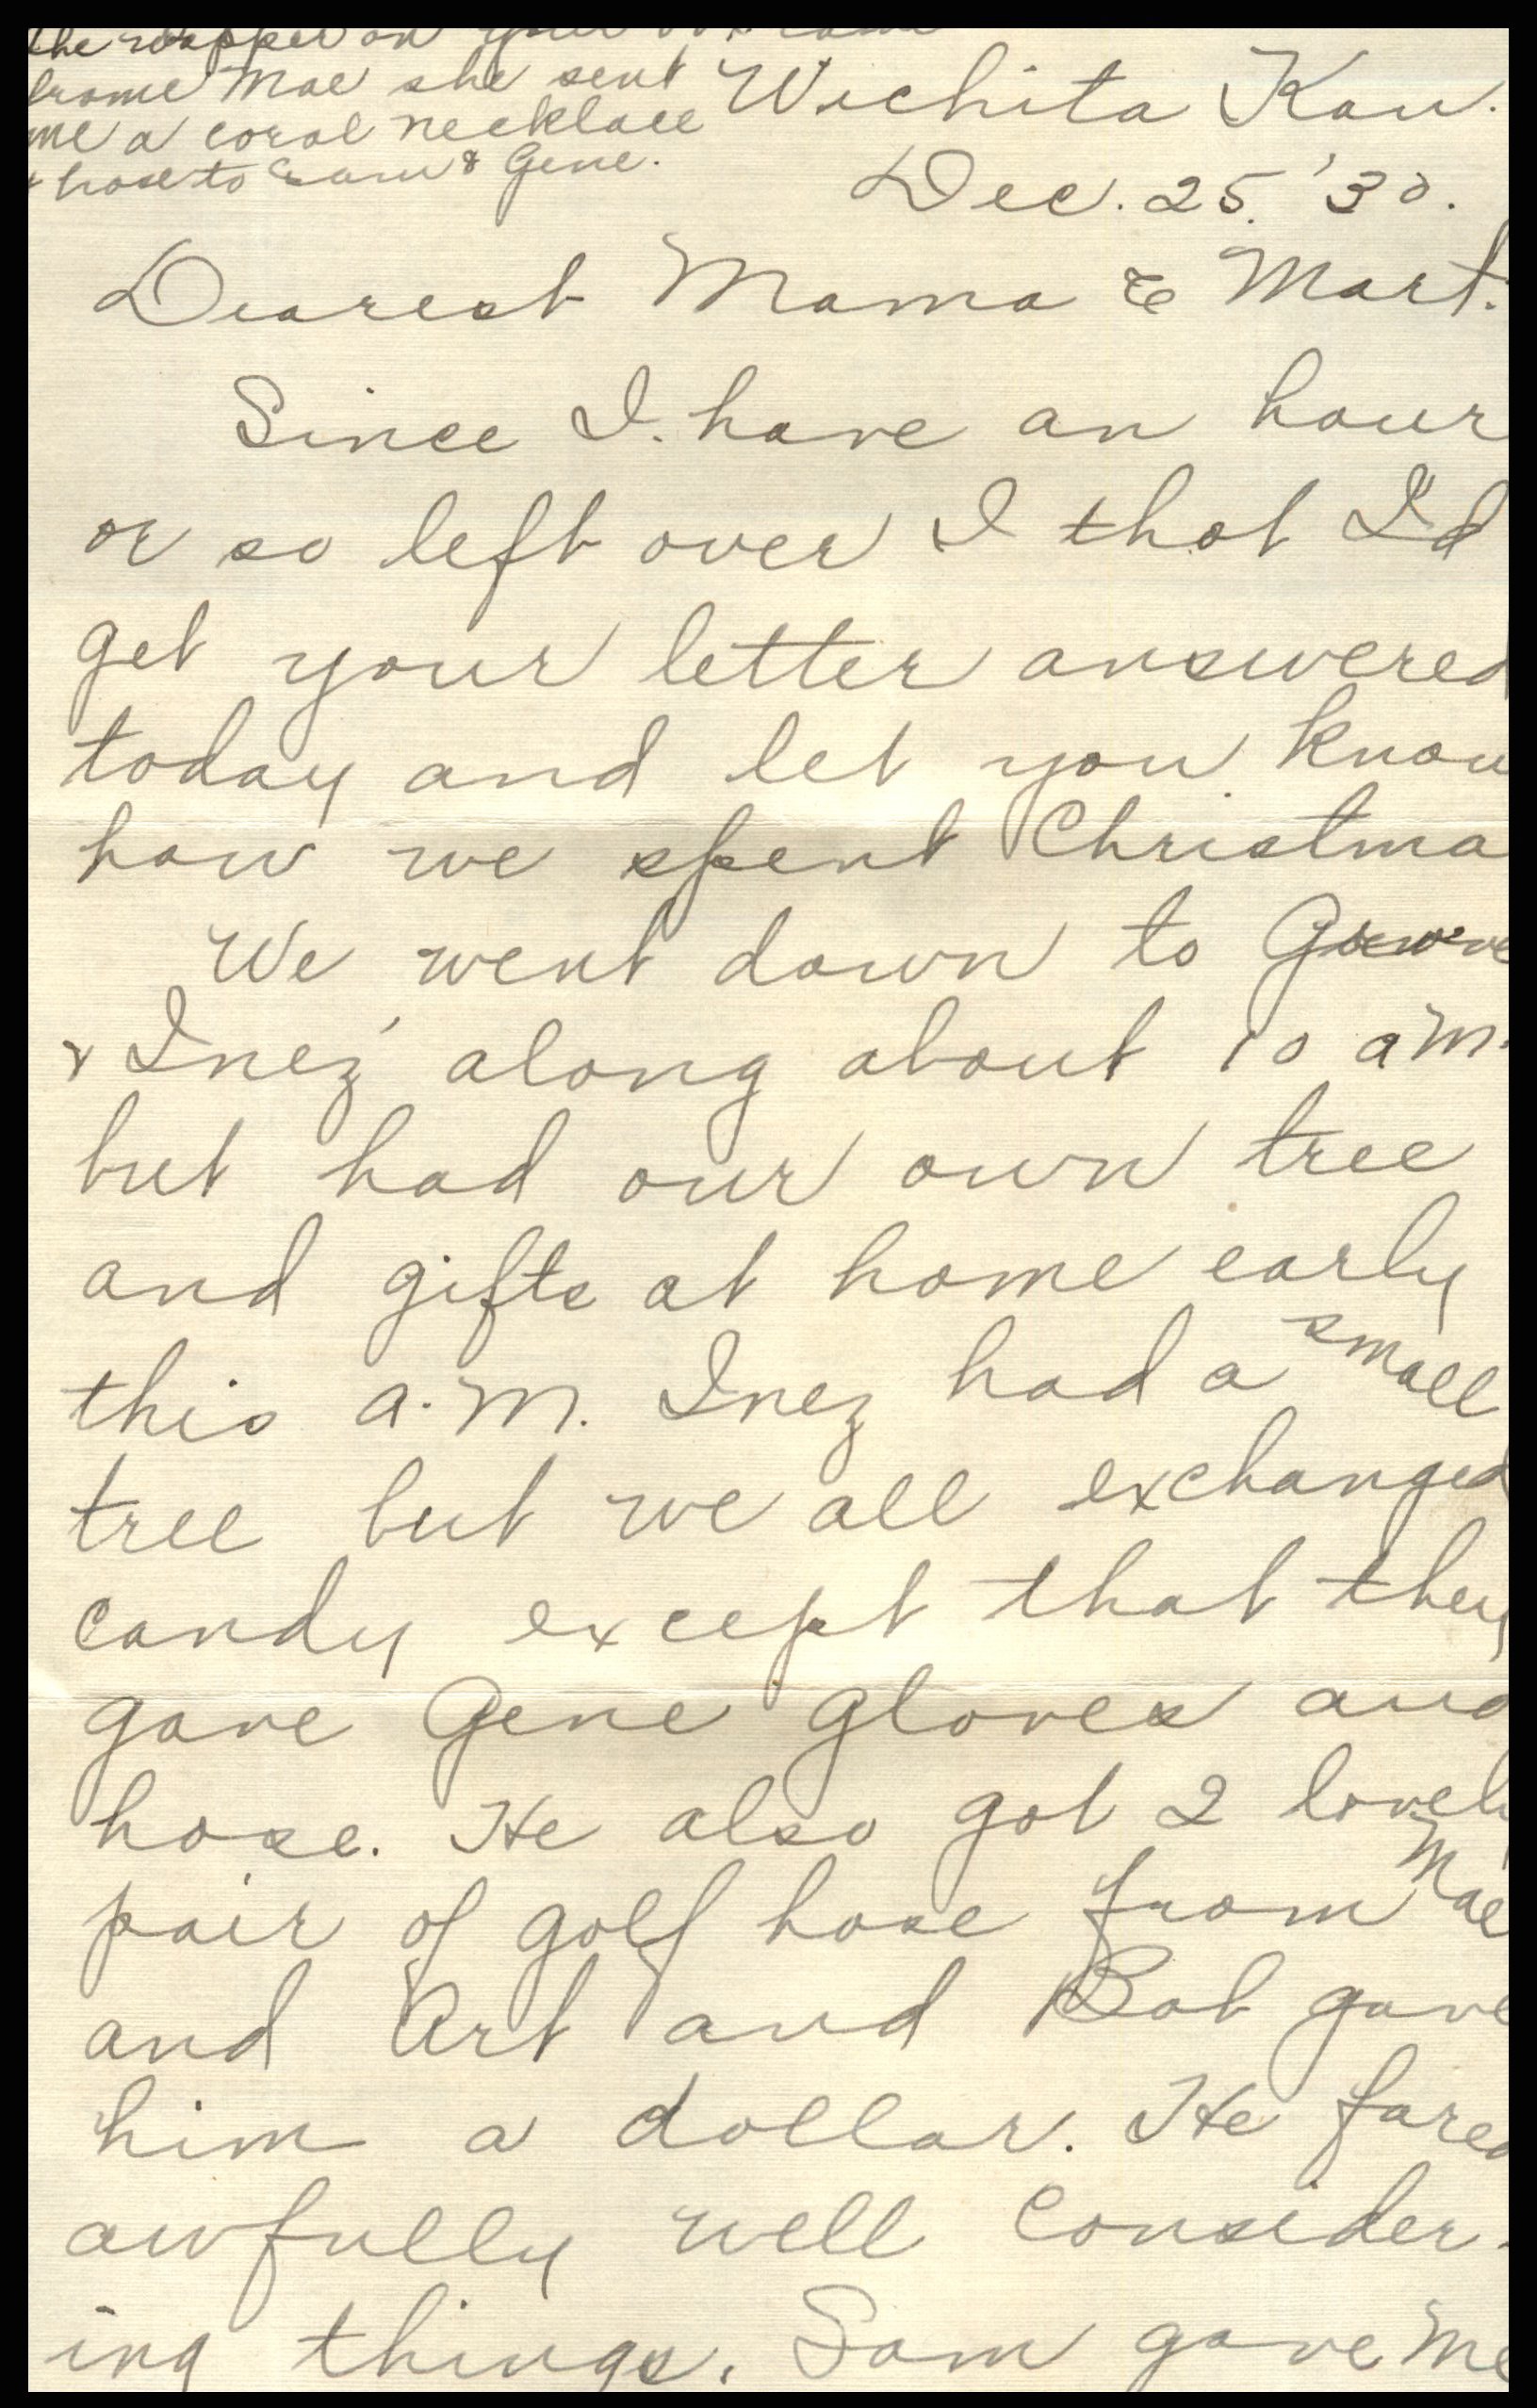 the wrapper on your box came
frome Mae she sent
me a coral necklace
& hose to Sam & Gene.
Wichita Kan.
Dec. 25. '30.
Dearest Mama & Mart.
Since I. have an hour
or so left over I thot I'd
get your letter answered
today and let you know
how we spent Christma
We went down to
& Inez' along about 10 a m.
but had our own tree
and gifts at home early
this a.m. Inez had a small
tree but we all exchanged
candy except that they
gave Gene gloves and
hose. He also got 2 lovely
pair of golf hose from Mae
and Art and Bob gave
him a dollar. He fared
awfully well consider-
ing things. Sam gave me